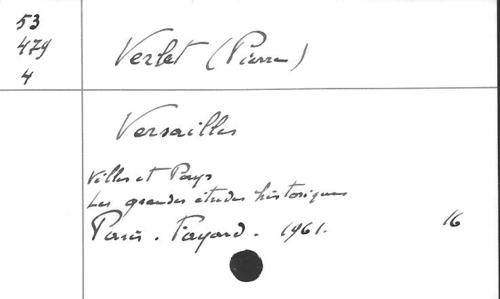 53
479
4
Verlet (Pierre)
Versailles
Villes et Pays
Les grandes études historiques
Paris. Fayard. 1961.
16